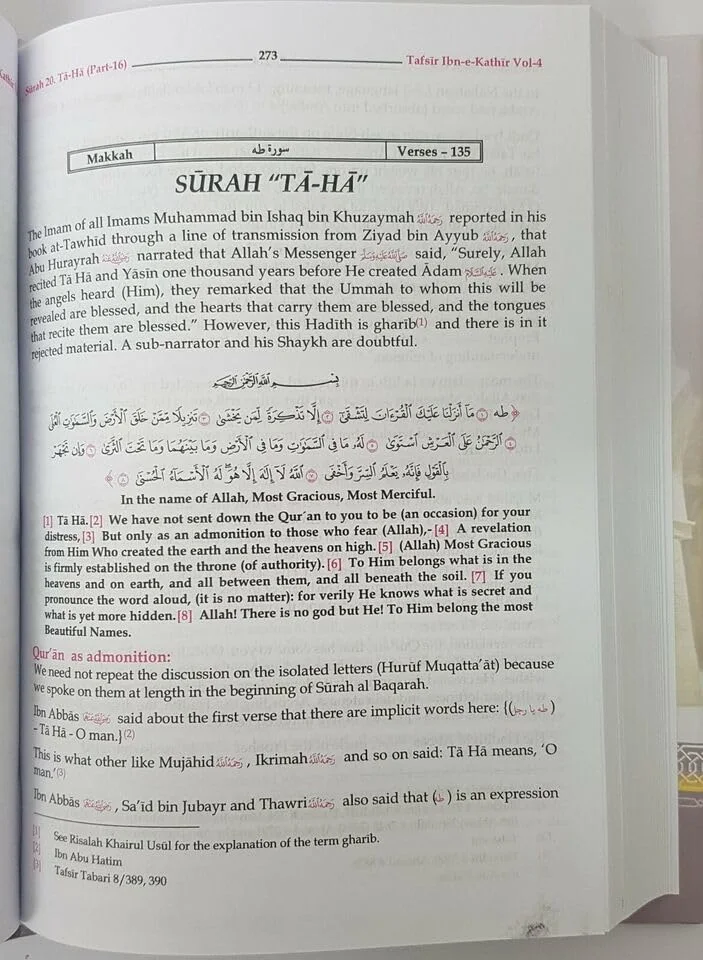 Sūrah 20. Tā-Hā (Part-16) 273 Tafsīr Ibn-e-Kathīr Vol-4
Makkah سورة طه Verses – 135
SŪRAH “TĀ-HĀ”
The Imam of all Imams Muhammad bin Ishaq bin Khuzaymah رحمه الله reported in his
book at-Tawhīd through a line of transmission from Ziyad bin Ayyub رحمه الله, that
Abu Hurayrah رضي الله عنه narrated that Allah’s Messenger صلى الله عليه وسلم said, “Surely, Allah
recited Tā Hā and Yāsīn one thousand years before He created Ādam عليه السلام. When
the angels heard (Him), they remarked that the Ummah to whom this will be
revealed are blessed, and the hearts that carry them are blessed, and the tongues
that recite them are blessed.” However, this Hadīth is gharīb(1) and there is in it
rejected material. A sub-narrator and his Shaykh are doubtful.
بِسْمِ اللَّهِ الرَّحْمَٰنِ الرَّحِيمِ
﴿ طه ۝١ مَا أَنزَلْنَا عَلَيْكَ الْقُرْءَانَ لِتَشْقَىٰ ۝٢ إِلَّا تَذْكِرَةً لِّمَن يَخْشَىٰ ۝٣ تَنزِيلًا مِّمَّنْ خَلَقَ الْأَرْضَ وَالسَّمَٰوَٰتِ الْعُلَى
۝٤ الرَّحْمَٰنُ عَلَى الْعَرْشِ اسْتَوَىٰ ۝٥ لَهُ مَا فِي السَّمَٰوَٰتِ وَمَا فِي الْأَرْضِ وَمَا بَيْنَهُمَا وَمَا تَحْتَ الثَّرَىٰ ۝٦ وَإِن تَجْهَرْ
بِالْقَوْلِ فَإِنَّهُ يَعْلَمُ السِّرَّ وَأَخْفَى ۝٧ اللَّهُ لَا إِلَٰهَ إِلَّا هُوَ لَهُ الْأَسْمَاءُ الْحُسْنَىٰ ۝٨ ﴾
In the name of Allah, Most Gracious, Most Merciful.
[1] Tā Hā.[2] We have not sent down the Qur’an to you to be (an occasion) for your
distress,[3] But only as an admonition to those who fear (Allah),- [4] A revelation
from Him Who created the earth and the heavens on high.[5] (Allah) Most Gracious
is firmly established on the throne (of authority). [6] To Him belongs what is in the
heavens and on earth, and all between them, and all beneath the soil. [7] If you
pronounce the word aloud, (it is no matter): for verily He knows what is secret and
what is yet more hidden.[8] Allah! There is no god but He! To Him belong the most
Beautiful Names.
Qur’ān as admonition:
We need not repeat the discussion on the isolated letters (Hurūf Muqatta’āt) because
we spoke on them at length in the beginning of Sūrah al Baqarah.
Ibn Abbās رضي الله عنه said about the first verse that there are implicit words here: {(طه يا رجل)
- Tā Hā - O man.}(2)
This is what other like Mujāhid رحمه الله, Ikrimah رحمه الله and so on said: Tā Hā means, ‘O
man.’(3)
Ibn Abbās رضي الله عنه, Sa’īd bin Jubayr and Thawri رحمه الله also said that (طه) is an expression
[1] See Risalah Khairul Usūl for the explanation of the term gharīb.
[2] Ibn Abu Hatim
[3] Tafsīr Tabari 8/389, 390